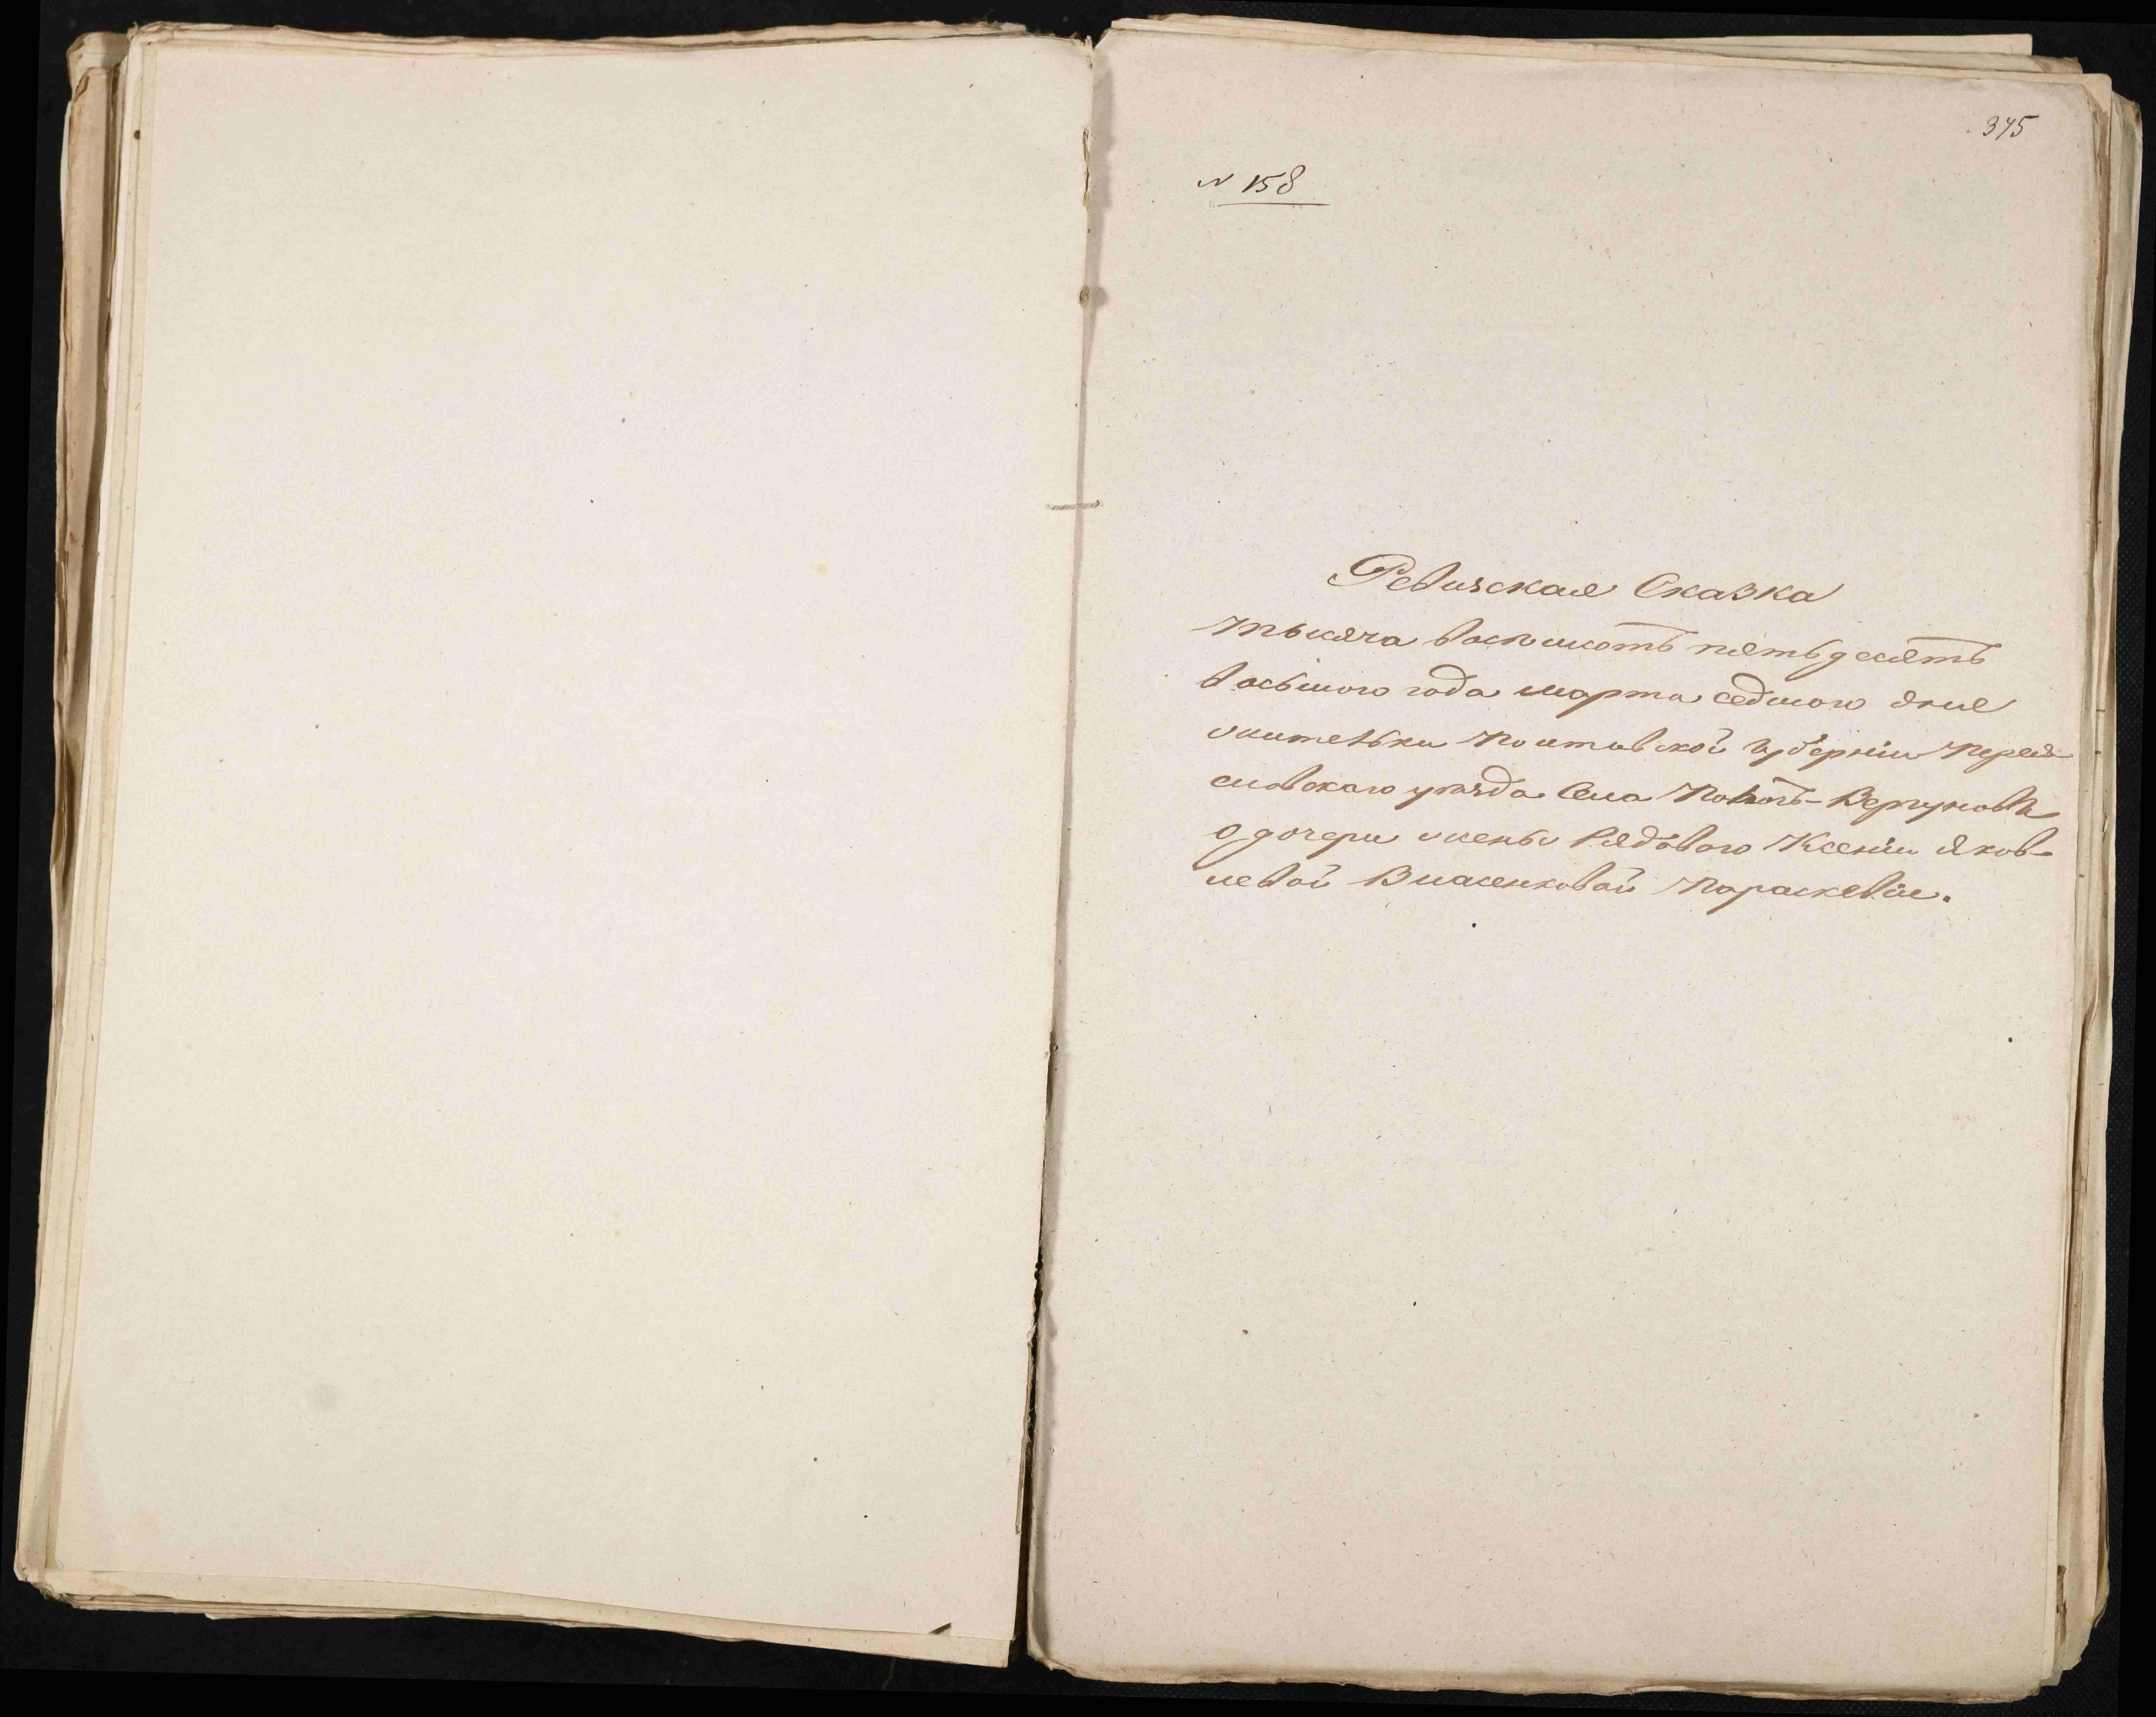 375
N 158
Ревизская Сказка
тысяча восемсотъ пятьдесятъ
восьмого года марта седмого дня
жительки Полтавской губерніи Перея-
славскаго уѣзда Села Вергуновки
о дочери жены Рядового Ксеніи Яков-
левой Власенковой Параскевіи.